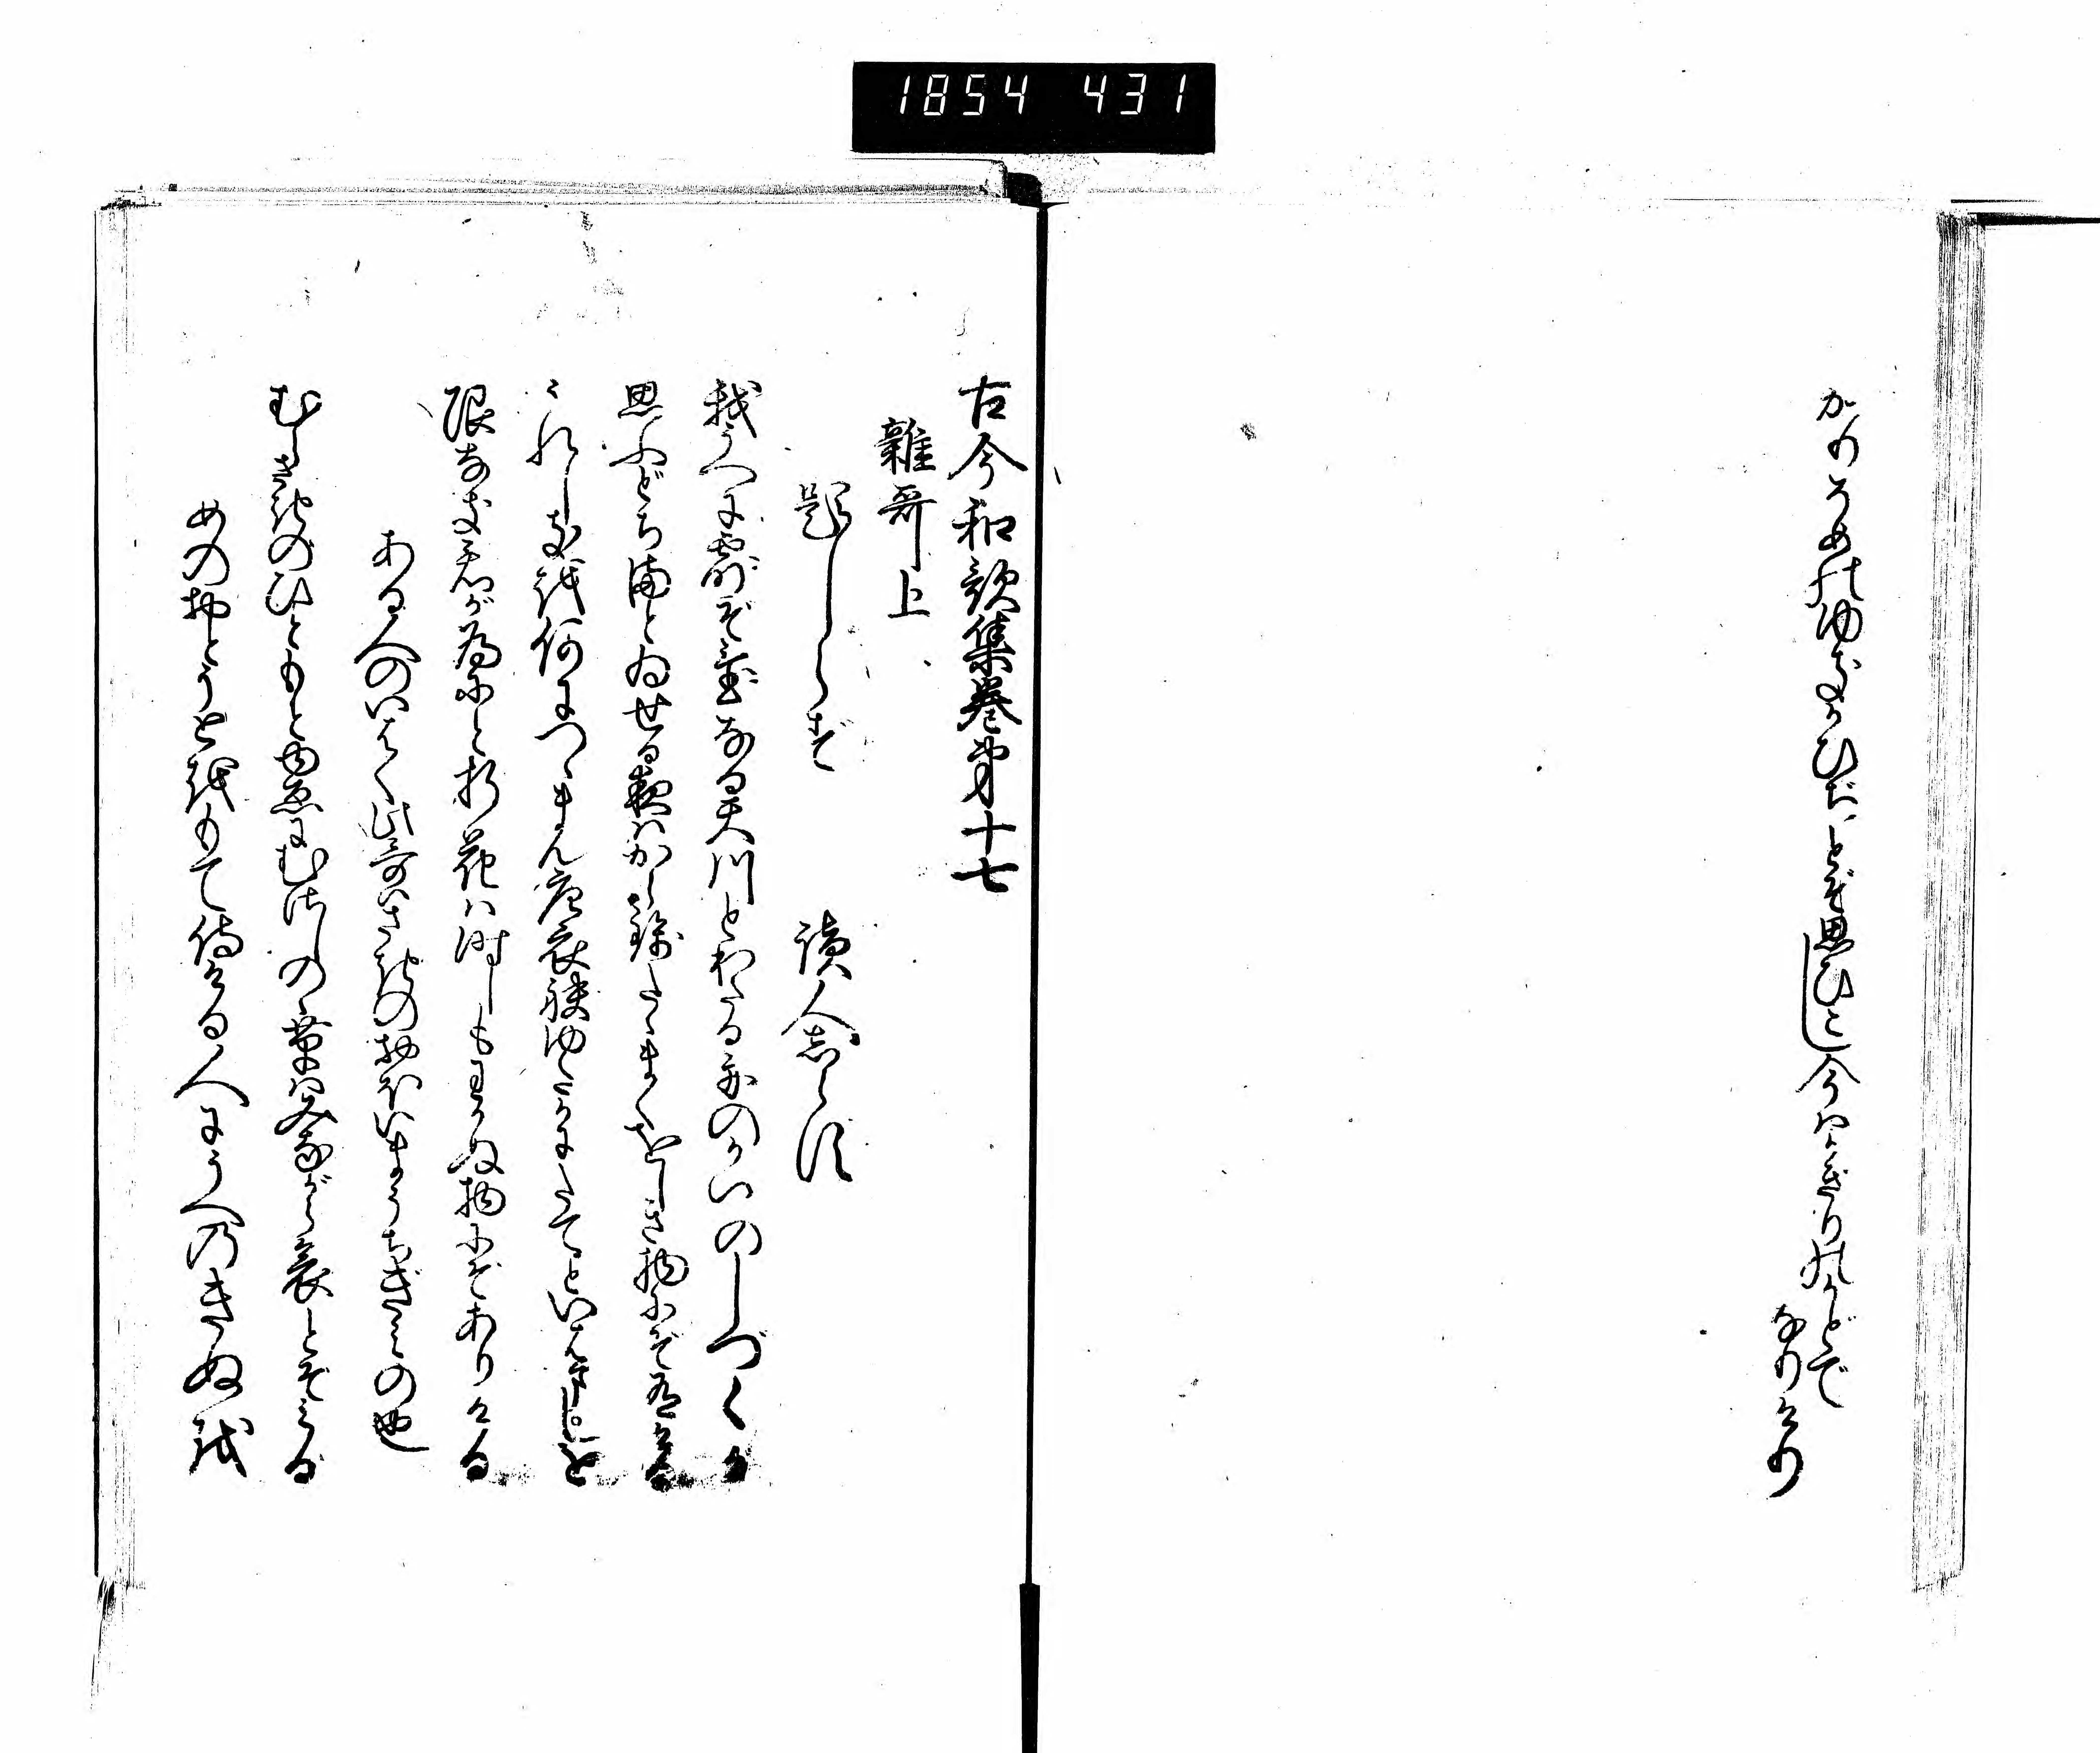 1854 431
かりそめのゆきかひぢとぞ思ひこし今はかぎりのかどで
なりけり
古今和歌集巻第十七
雑哥上
題しらず
読人しらず
我うへに露ぞ置なる天川とわたる舟のかいのしづくか
思ふどちまとゐせる夜はから錦たゝまくをしき物にぞ有ける
うれしきを何につゝまん唐衣袂ゆたかにたてといはましを
限なき君が為にと折花は時しもわかぬ物にぞありける
ある人のいはく此哥はさきのおほいまうちぎみの也
むらさきのひともとゆゑにむさしのゝ草はみながら哀とぞみる
めのおとうとをもて侍ける人にうへのきぬを